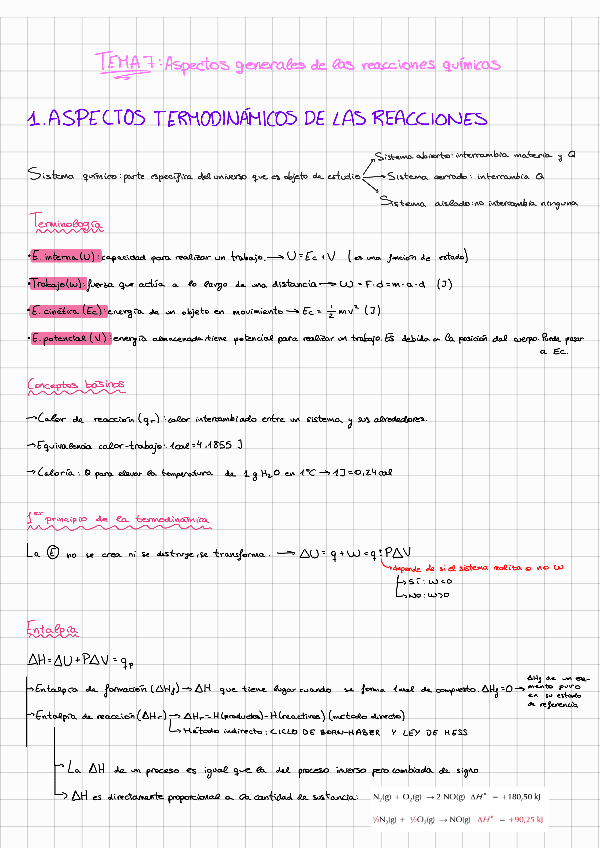 TEMA 7: Aspectos generales de las reacciones químicas
1. ASPECTOS TERMODINÁMICOS DE LAS REACCIONES
Sistema abierto: intercambia materia y Q
Sistema químico: parte específica del universo que es objeto de estudio → Sistema cerrado: intercambia Q
Sistema aislado: no intercambia ninguna
Terminología
• E. interna (U): capacidad para realizar un trabajo. → U = Ec + V (es una función de estado)
• Trabajo (w): fuerza que actúa a lo largo de una distancia → W = F·d = m·a·d (J)
• E. cinética (Ec): energía de un objeto en movimiento → Ec = 1/2 mv² (J)
• E. potencial (V): energía almacenada. tiene potencial para realizar un trabajo. Es debida a la posición del cuerpo. Puede pasar
a Ec.
Conceptos básicos
→ Calor de reacción (qr): calor intercambiado entre un sistema y sus alrededores.
→ Equivalencia calor-trabajo: 1cal = 4.1855 J
→ Caloría: Q para elevar la temperatura de 1 g H2O en 1°C → 1J = 0,24 cal
1er principio de la termodinámica
La E no se crea ni se destruye, se transforma. → ΔU = q + W = q ± PΔV
depende de si el sistema realiza o no w
→ SÍ: w<0
→ NO: w>0
Entalpía
ΔH = ΔU + PΔV = qp
→ Entalpía de formación (ΔHf) → ΔH que tiene lugar cuando se forma 1 mol de compuesto. ΔHf = 0 → ΔHf de un elemento puro en su estado de referencia
→ Entalpía de reacción (ΔHr) → ΔHr = H(productos) - H(reactivos) (método directo)
→ Método indirecto: CICLO DE BORN-HABER Y LEY DE HESS
→ La ΔH de un proceso es igual que la del proceso inverso pero cambiada de signo
→ ΔH es directamente proporcional a la cantidad de sustancia: N₂(g) + O₂(g) → 2 NO(g) ΔH° = +180,50 kJ
½N₂(g) + ½O₂(g) → NO(g) ΔH° = +90,25 kJ